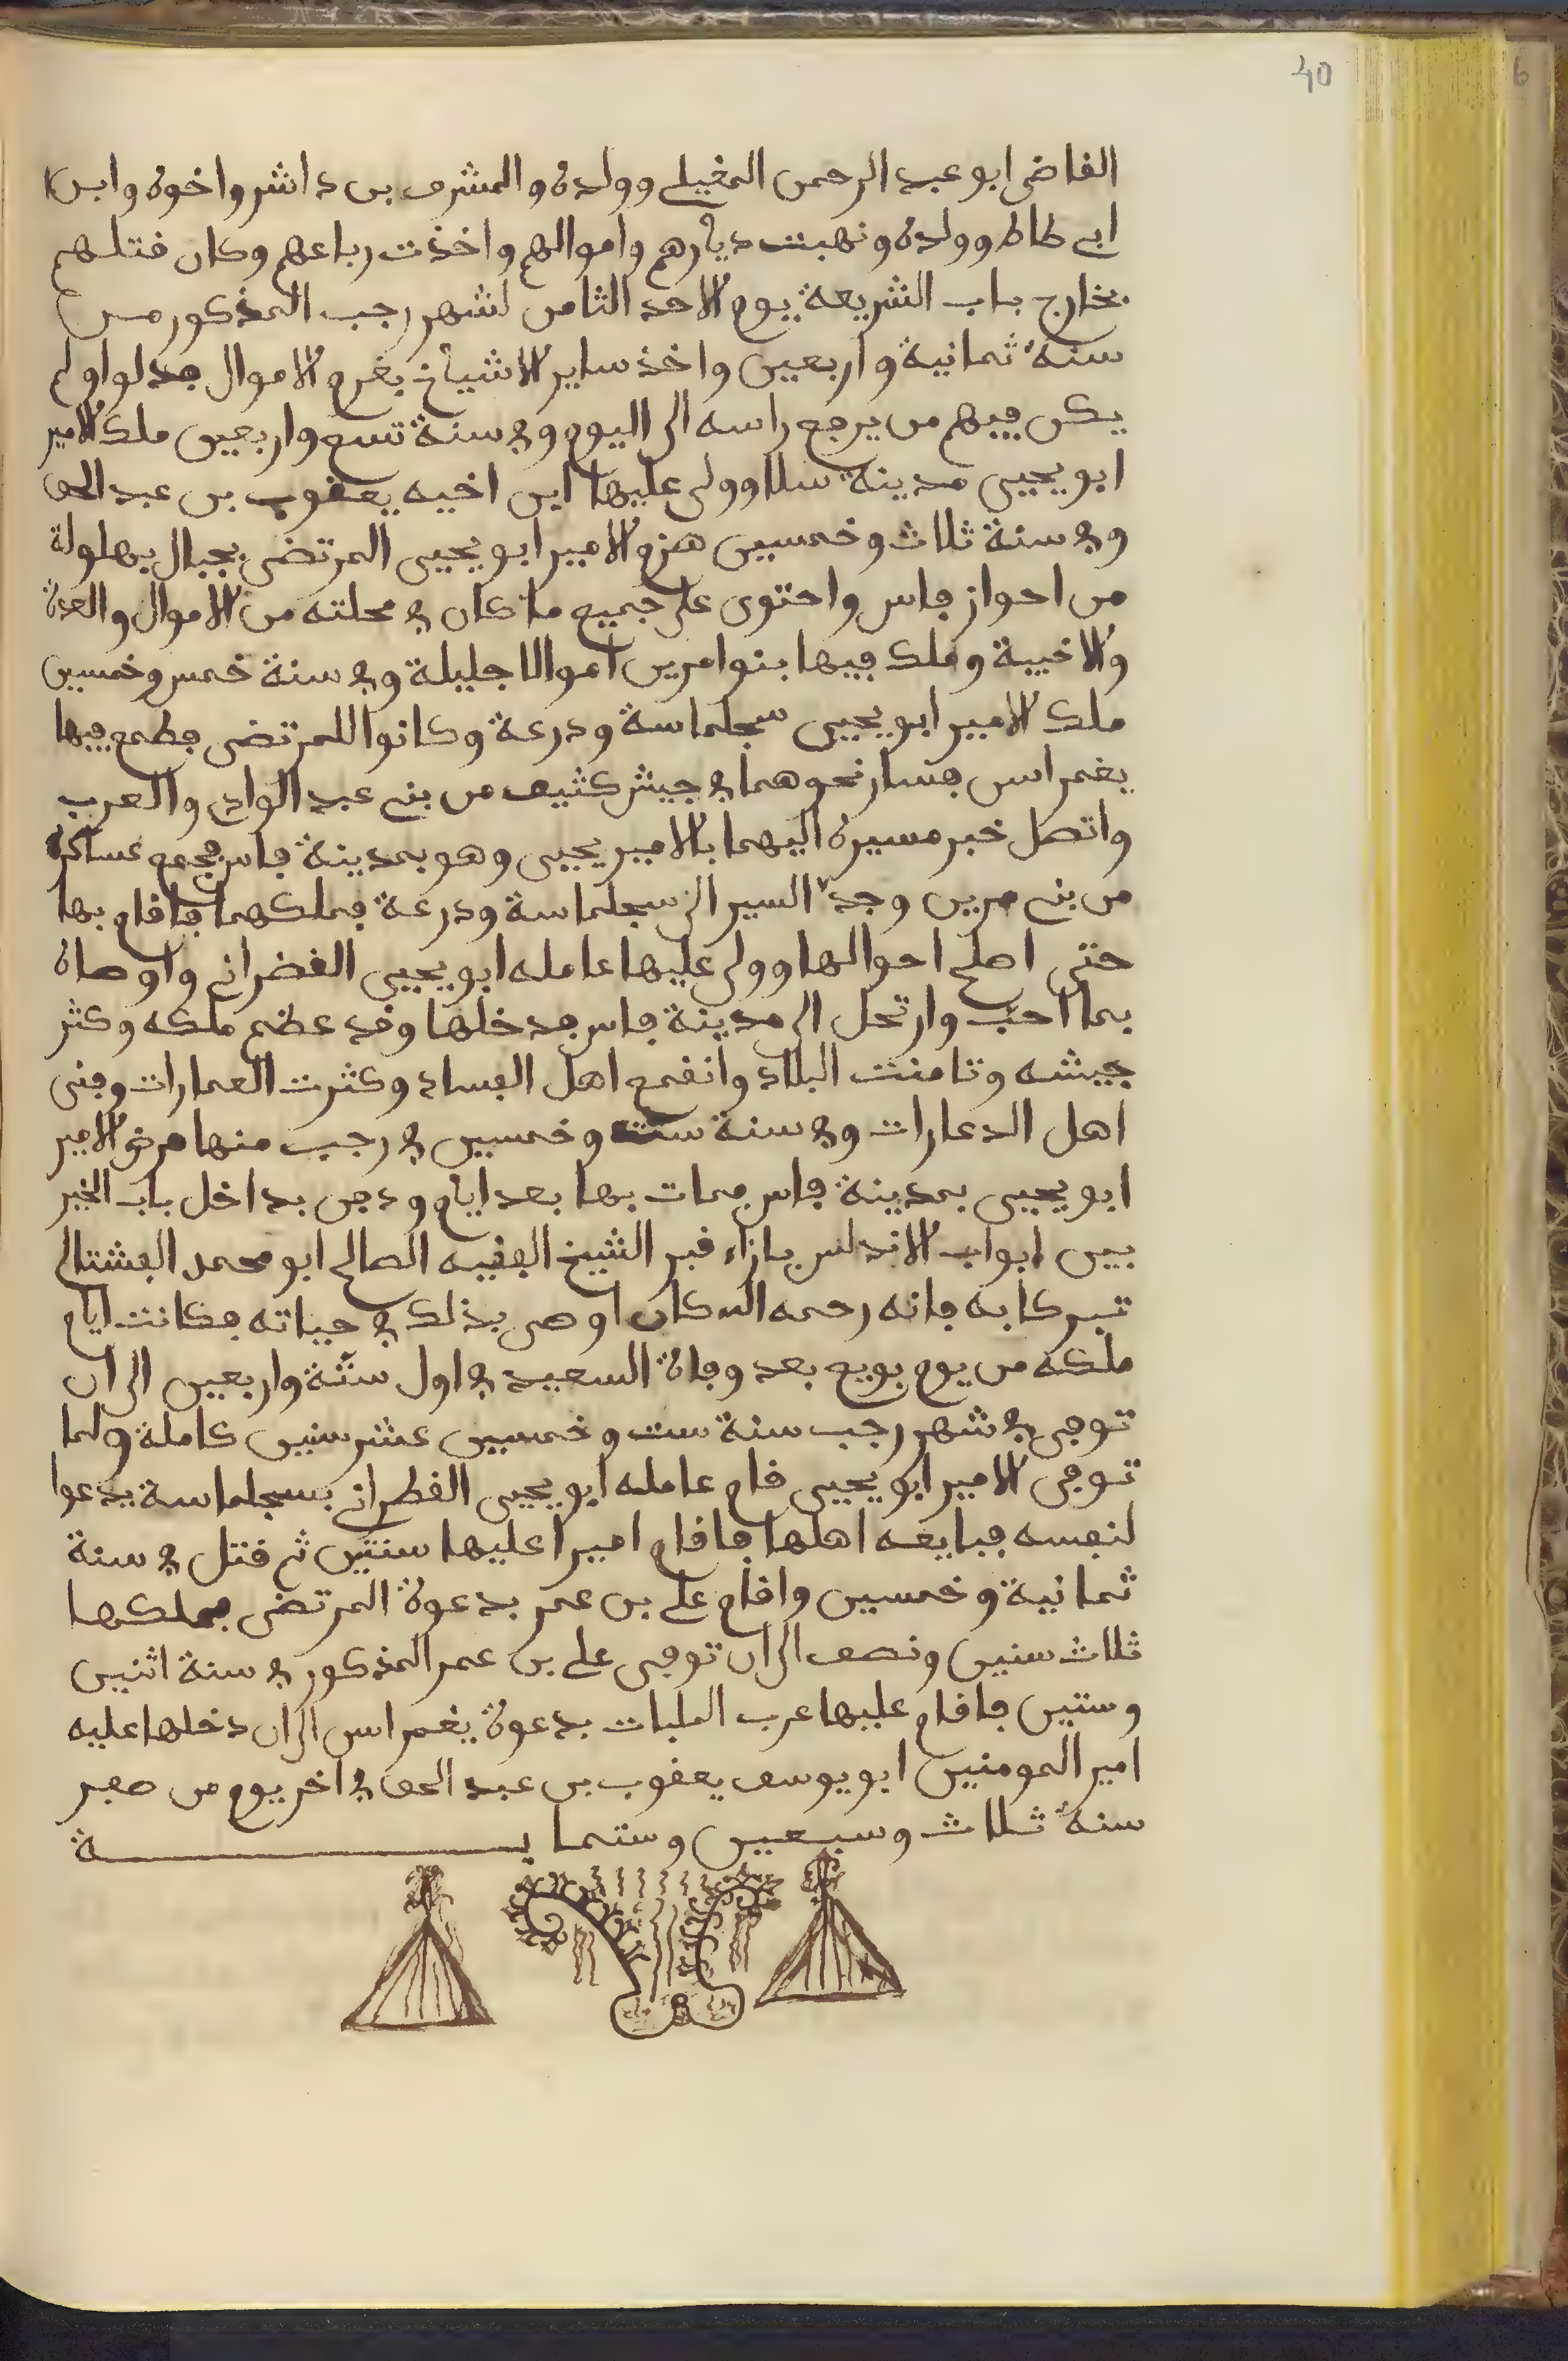 40
6
القاضى ابو عبد الرحمن المغيلي وولده والمشرف بن داشر واخوه وابن
ابي طاط وولده ونهبت ديارهم واموالهم واخذت رباعهم وكان قتلهم
بخارج باب الشريعة يوم الاحد الثامن لشهر رجب المذكور من
سنة ثمانية واربعين واخذ ساير الاشياخ بغرم الاموال فدلوا ولم
يكن فيهم من يرجع راسه الى اليوم وفي سنة تسع واربعين ملك الامير
ابو يحيى مدينة سلا وولى عليها ابن اخيه يعقوب بن عبد الحق
وفي سنة ثلاث وخمسين هزم الامير ابو يحيى المرتضى بجبال بهلولة
من احواز فاس واحتوى على جميع ما كان في محلته من الاموال والعدة
والاخبية وملك فيها بنوا مرين اموالا جليلة وفي سنة خمس وخمسين
ملك الامير ابو يحيى سجلماسة ودرعة وكانوا للمرتضى فطمع فيها
يغمراسن فسار نحوهما في جيش كثيف من بني عبد الوادي والعرب
واتصل خبر مسيره اليهما بالامير يحيى وهو بمدينة فاس فجمع عساكره
من بني مرين وجد السير الى سجلماسة ودرعة فملكهما فاقام بها
حتى اصلح احوالها وولى عليها عامله ابو يحيى القضراني واوصاه
بما احب وارتحل الى مدينة فاس فدخلها وقد عضم ملكه وكثر
جيشه وتامنت البلاد وانقمع اهل الفساد وكثرت العمارات وفنى
اهل الدعارات وفي سنة ست وخمسين في رجب منها مرض الامير
ابو يحيى بمدينة فاس فمات بها بعد ايام ودفن بداخل باب الخير
بين ابواب الاندلس بازاء قبر الشيخ الفقيه الصالح ابو محمد الفشتالي
تبركا به فانه رحمه الله كان اوصى بذلك في حياته فكانت ايام
ملكه من يوم بويع بعد وفاة السعيد في اول ستة واربعين الى ان
توفى في شهر رجب سنة ست وخمسين عشر سنين كاملة ولما
توفى الامير ابو يحيى قام عامله ابو يحيى القطراني بسجلماسة يدعوا
لنفسه فبايعه اهلها فاقام اميرا عليها سنتين ثم قتل في سنة
ثمانية وخمسين واقام علي بن عمر بدعوة المرتضى فملكها
ثلاث سنين ونصف الى ان توفى علي بن عمر المذكور في سنة اثنين
وستين فاقام عليها عرب الملبات بدعوة يغمراسن الى ان دخلها عليه
امير المومنين ابو يوسف يعقوب بن عبد الحق في اخر يوم من صفر
سنة ثلاث وسبعين وستماية